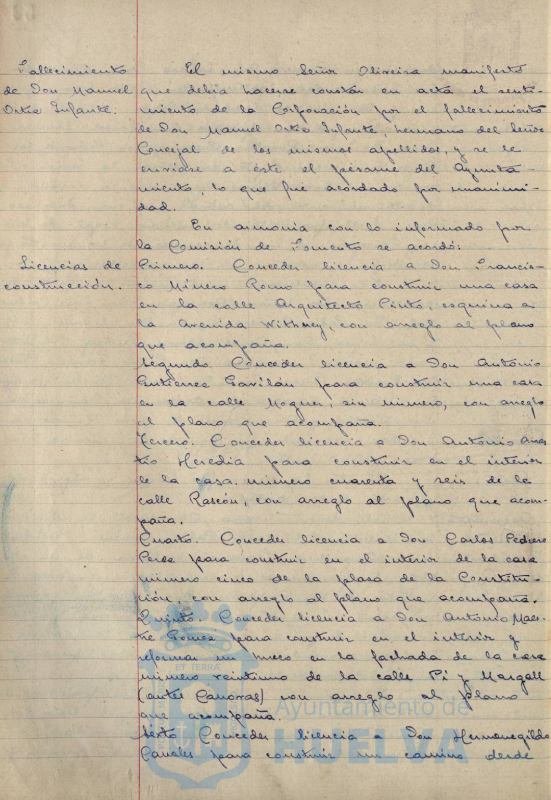 Fallecimiento
de Don Manuel
Ortiz Infante.
El mismo Señor Oliveira manifestó
que debía hacerse constar en acta el senti-
miento de la Corporación por el fallecimiento
de Don Manuel Ortiz Infante, hermano del Señor
Concejal de los mismos apellidos, y se le
enviase a éste el pésame del Ayunta-
miento, lo que fué acordado por unanimi-
dad.
En armonía con lo informado por
la Comisión de Fomento se acordó:
Licencias de
construcción.
Primero. Conceder licencia a Don Francis-
co Minero Romo para construir una casa
en la calle Arquitecto Pinto, esquina a
la Avenida Withney, con arreglo al plano
que acompaña.
Segundo. Conceder licencia a Don Antonio
Gutierrez Gavilán para construir una casa
en la calle Moguer, sin número, con arreglo
al plano que acompaña.
Tercero. Conceder licencia a Don Antonio
Heredia para construir en el interior
de la casa número cuarenta y seis de la
calle Rascón, con arreglo al plano que acom-
paña.
Cuarto. Conceder licencia a Don Carlos Pedrero
Perez para construir en el interior de la casa
número cinco de la plaza de la Constitu-
ción, con arreglo al plano que acompaña.
Quinto. Conceder licencia a Don Antonio Maes-
tre Gomez para construir en el interior y
reformar un hueco en la fachada de la casa
número veintiuno de la calle Pi y Margall
(antes Canovas) con arreglo al plano
que acompaña.
Sexto. Conceder licencia a Don Hermenegildo
Canales para construir un camino desde
ET TERRÆ
Ayuntamiento de
HUELVA